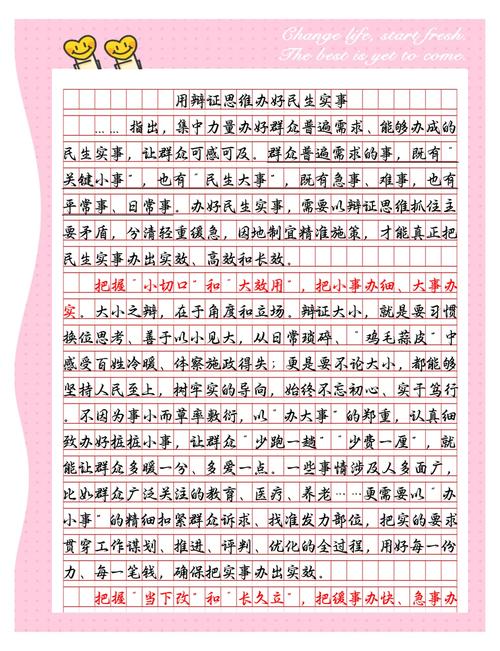 Change life, start fresh.
The best is yet to come.
用辩证思维办好民生实事
……指出，集中力量办好群众普遍需求、能够办成的
民生实事，让群众可感可及。群众普遍需求的事，既有“
关键小事”，也有“民生大事”，既有急事、难事，也有
平常事、日常事。办好民生实事，需要以辩证思维抓住主
要矛盾，分清轻重缓急，因地制宜精准施策，才能真正把
民生实事办出实效、高效和长效。
把握“小切口”和“大效用”，把小事办细、大事办
实。大小之辩，在于角度和立场。辩证大小，就是要习惯
换位思考、善于以小见大，从日常琐碎、“鸡毛蒜皮”中
感受百姓冷暖、体察施政得失；更是要不论大小，都能够
坚持人民至上，树牢实的导向，始终不忘初心、实干笃行
。不因为事小而草率敷衍，以“办大事”的郑重，认真细
致办好桩桩小事，让群众“少跑一趟”“少费一厘”，就
能让群众多暖一分、多爱一点。一些事情涉及人多面广，
比如群众广泛关注的教育、医疗、养老……更需要以“办
小事”的精细扣紧群众诉求、找准发力部位，把实的要求
贯穿工作谋划、推进、评判、优化的全过程，用好每一份
力、每一笔钱，确保把实事办出实效。
把握“当下改”和“长久立”，把缓事办快、急事办